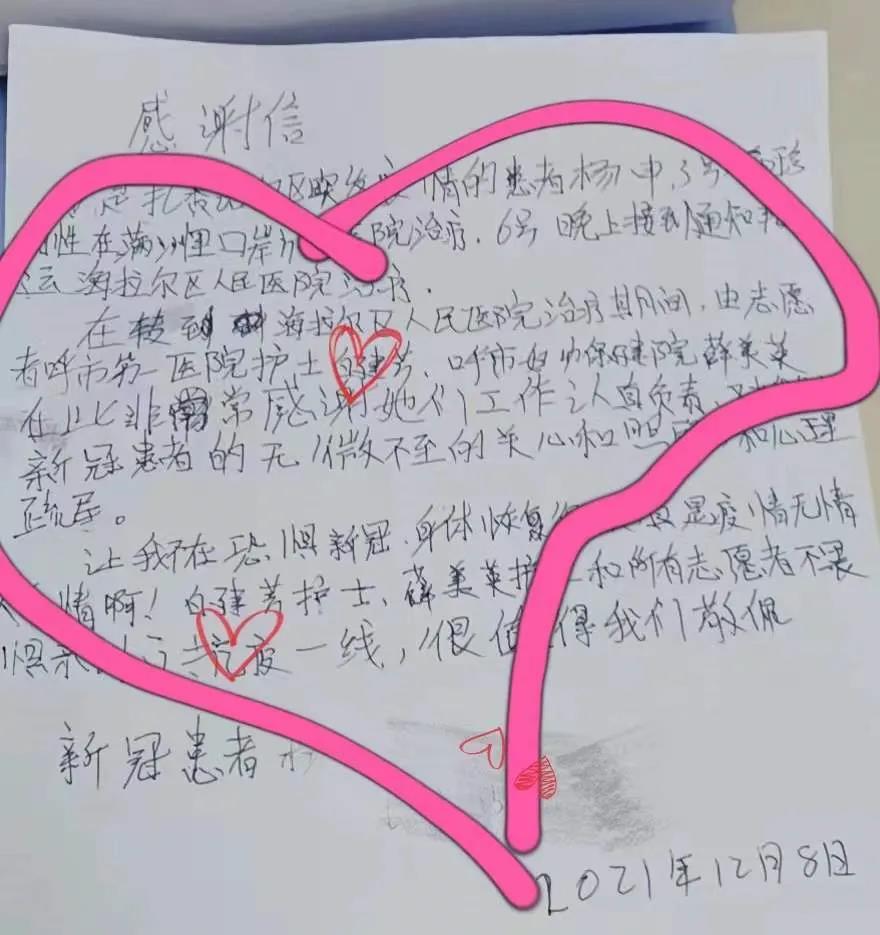 感谢信
是扎赉区突发疫情的患者杨中,3号
性在满洲里口岸医院治疗.6号晚上接到通知
运海拉尔区人民医院治疗.
在转到海拉尔区人民医院治疗其月间,由志愿
者呼市第一医院护士白建芳、呼市妇幼保健院薛美英
在此非常感谢她们工作认真负责,
新冠患者的无微不至的关心和照和心理
疏导。
让我不在恐惧新冠.身体恢复是疫情无情
情啊!白建芳护士、薛美英护和所有志愿者不畏
惧一线,很值得我们敬佩
新冠患者
2021年12月8日